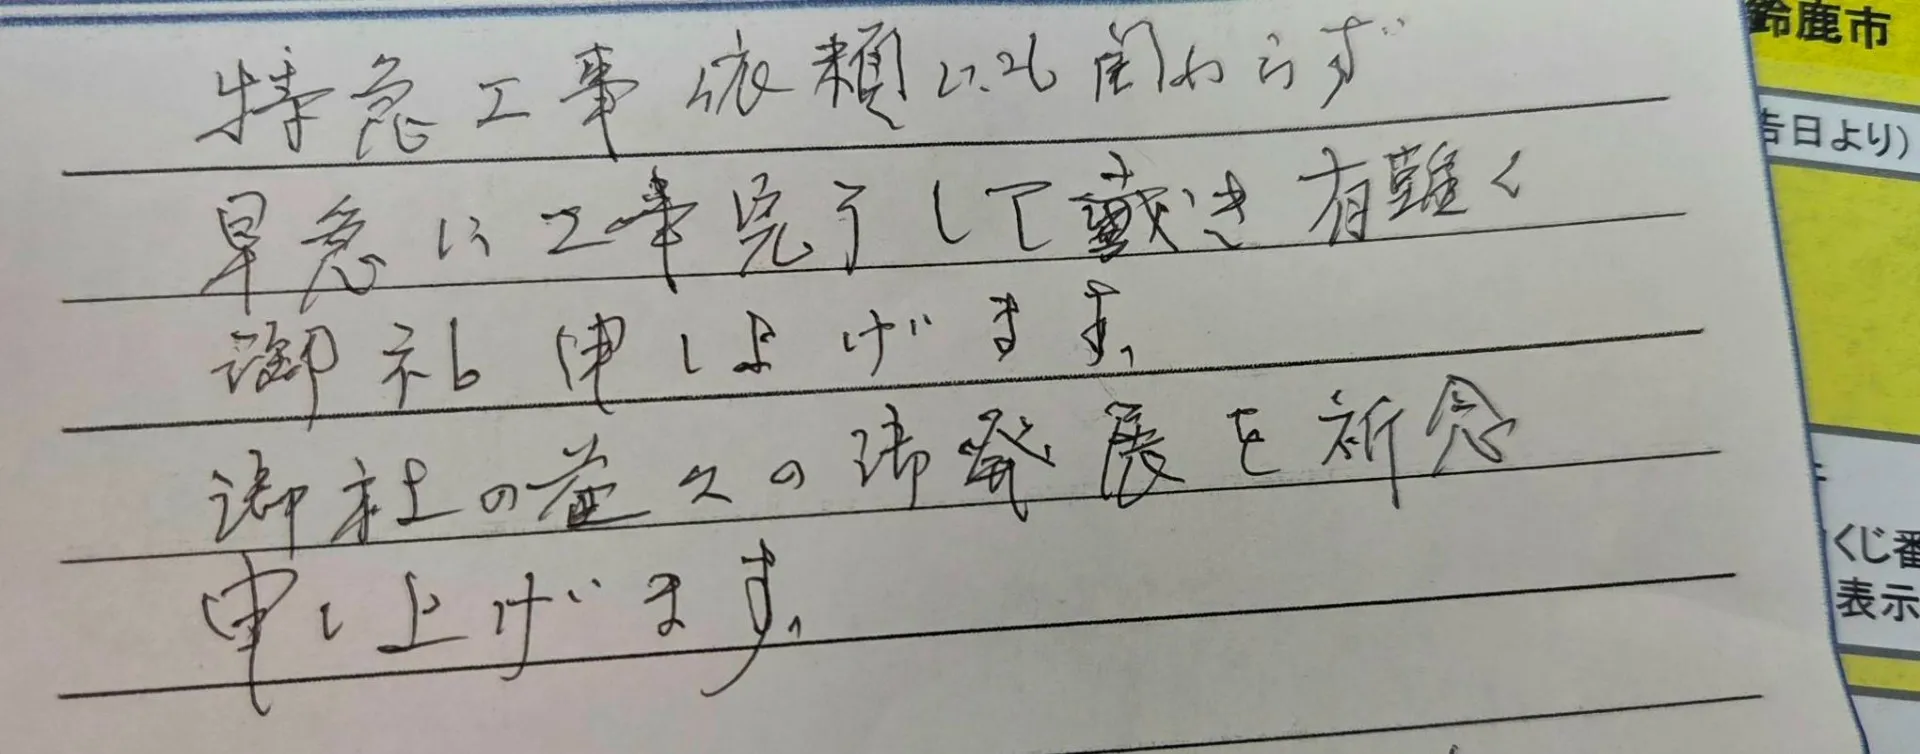 特急工事依頼にも関わらず
早急に工事完了して戴き有難く
御礼申し上げます。
御社の益々の御発展を祈念
申し上げます。
鈴鹿市
告日より)
くじ番
表示